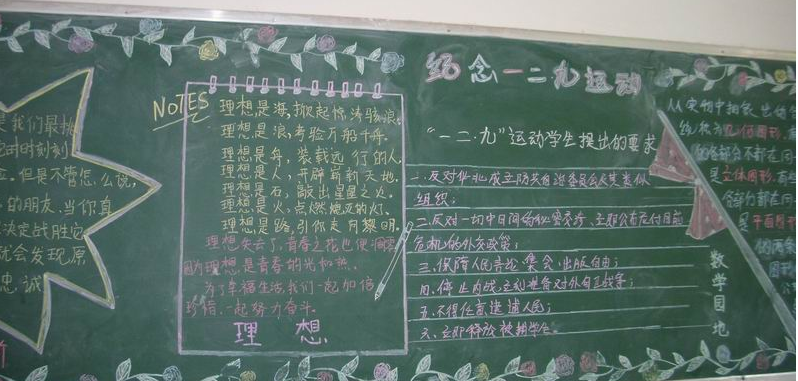 是我们最挑
应对时刻刻
立.但是不管怎么说,
的朋友.当你真
决定战胜它
就会发现原
忠.诚
NOTES
理想是海,掀起惊涛骇浪.
理想是浪,考验万船千舟.
理想是舟,装载远行的人.
理想是人,开辟崭新天地.
理想是石,敲出星星之火.
理想是火,点燃熄灭的灯.
理想是路,引你走向黎明.
理想失去了,青春之花也便凋零
因为理想是青春的光和热.
为了幸福生活我们一起加倍
珍惜.一起努力奋斗.
理想
纪念一二九运动
"一二·九"运动学生提出的要求
一.反对华北成立防共自治委员会及其类似
组织;
二.反对一切中日间的秘密交涉.立即公布应付目前
危机的外交政策;
三.保障人民言论.集会.出版自由;
四.停止内战.立刻准备对外自卫战争;
五.不得任意逮捕人民;
六.立即释放被捕学生.
数学园地
从实物中抽象出的
统称为几何图形.
的各部分不都在同一
是立体图形.
各部分都在同一
是平面图形